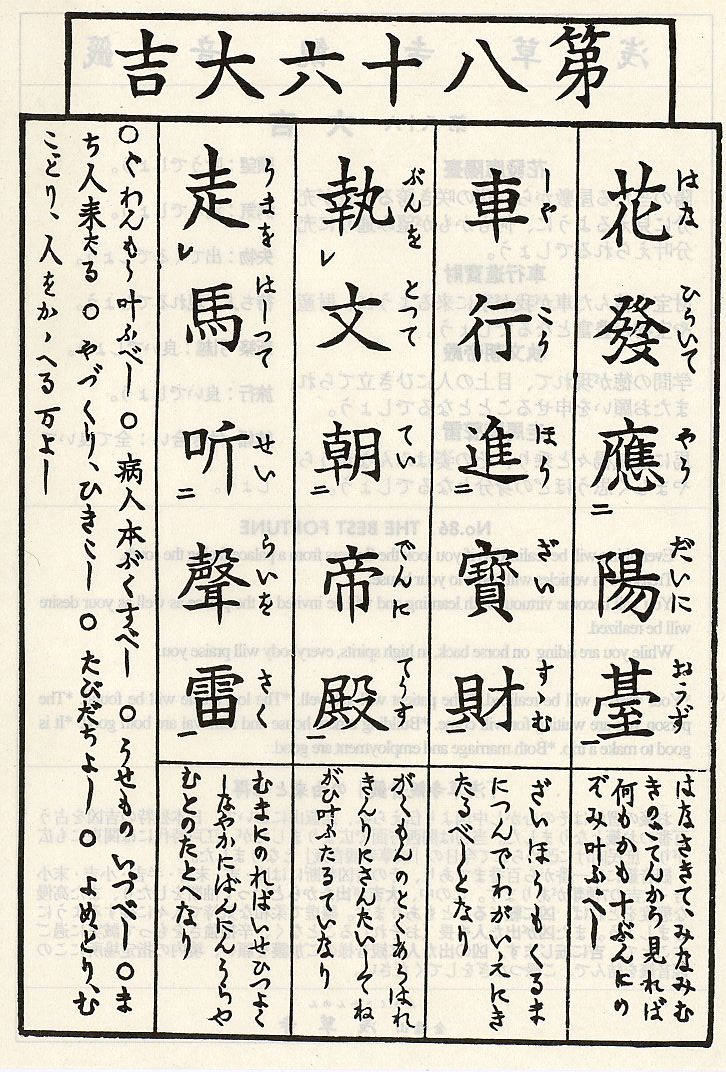 第八十六大吉
はな ひらいて やう だいに おうず
花發應二陽臺一
しや こう ほう ざい すむ
車行進二寶財一
ぶんを とつて てい でんに てうす
執レ文朝二帝殿一
うまを はしつて せい らいを きく
走レ馬听二聲雷一
はなさきてみなみむ
きのごてんから見れば
何もかも十ぶんにの
ぞみ叶ふべし
ざいほうもくるま
につんでわがいえにき
たるべしとなり
がくもんのとくあらはれ
きんりにさんだいしてね
がひ叶ふたるていなり
むまにのればいせひつよく
しなやかにばんにんうらや
むとのたとなり
○ぐわんもう叶ふべし ○病人本ぶくすべし ○うせものいづべし ○ま
ち人来たる ○やづくり、ひきこし ○たびだちよし ○よめどり、む
こどり、人をかゝへる万よし